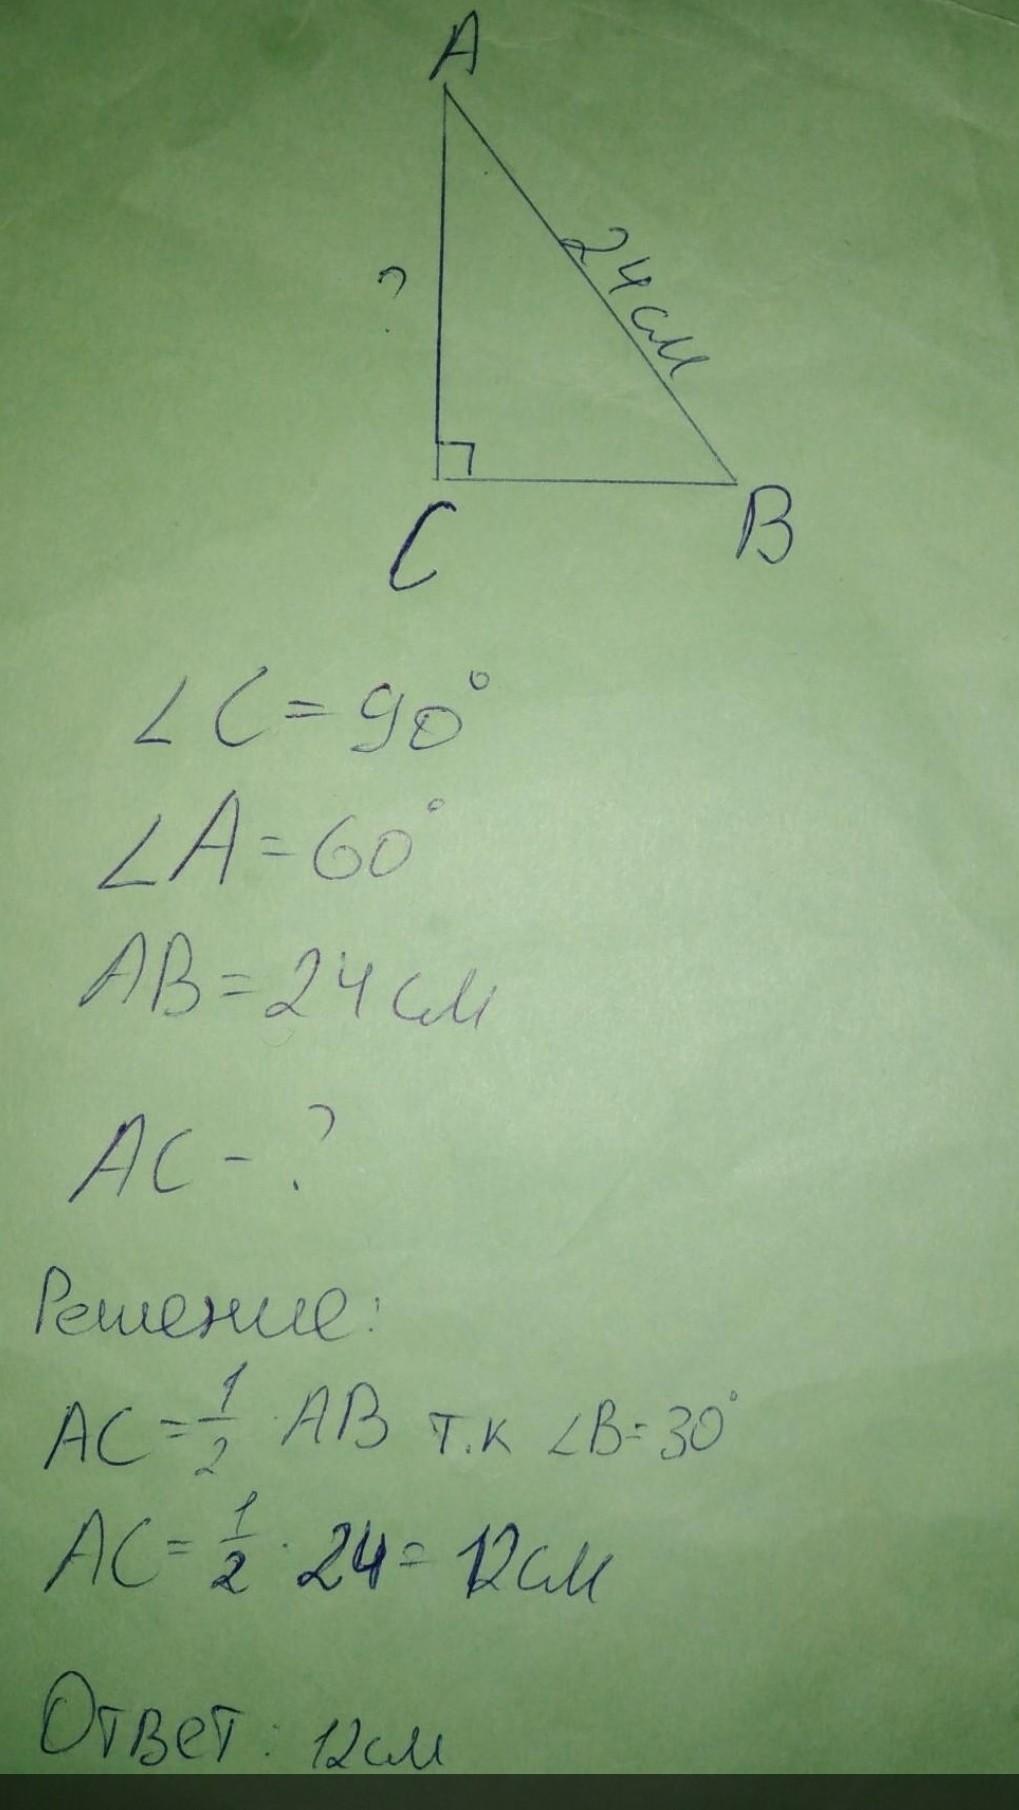 A
24см
?
C
B
∠C=90°
∠A=60°
AB=24см
AC-?
Решение:
AC=1/2·AB т.к ∠B=30°
AC=1/2·24=12см
Ответ: 12см